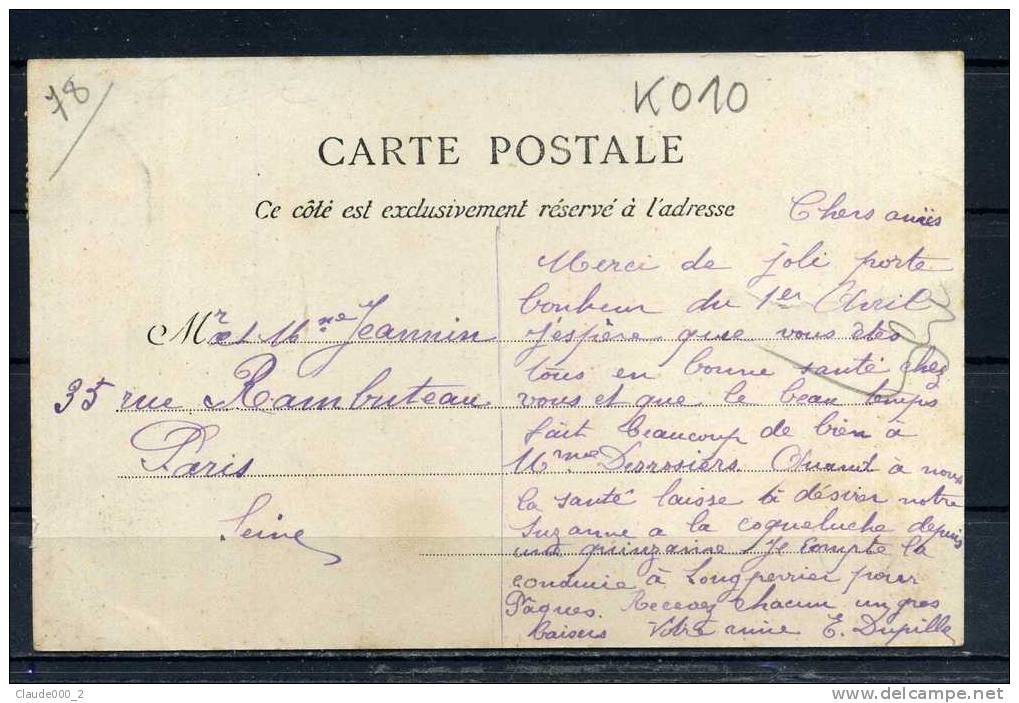 78
K010
CARTE POSTALE
Ce côté est exclusivement réservé à l'adresse
Mr et Mme Jeannin
35 rue Rambuteau
Paris
Seine
Chers amies
Merci de joli porte
bonheur du 1er Avril
J'espère que vous êtes
tous en bonne santé chez
vous et que le beau temps
fait beaucoup de bien à
Mme Desrosiers Quant à nous
la santé laisse à désirer notre
Suzanne a la coqueluche depuis
une quinzaine Je compte la
conduire à Longperrier pour
Pâques. Recevez chacun un gros
baisers Votre amie E. Dupille
Claude000_2
www.delcampe.net